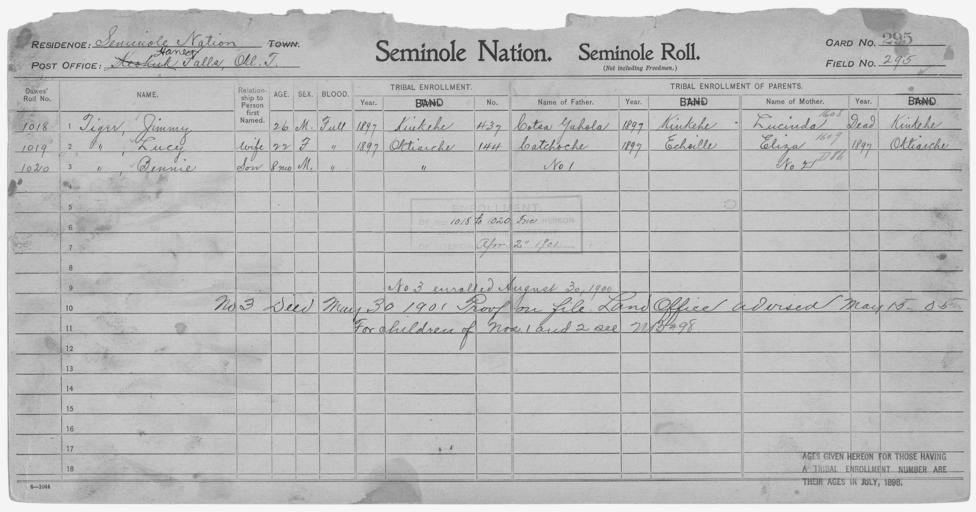 RESIDENCE: Seminole Nation TOWN.
POST OFFICE: Haney Falls, Okl. T.
Seminole Nation. Seminole Roll.
(Not including Freedmen.)
CARD NO. 295
FIELD NO. 295
Dawes' Roll No. NAME. Relationship to Person first Named. AGE. SEX. BLOOD. TRIBAL ENROLLMENT. TRIBAL ENROLLMENT OF PARENTS.
Year. BAND No. Name of Father. Year. BAND Name of Mother. Year. BAND
1018 1 Tiger, Jimmy 26 M. Full 1897 Kinkehe 437 Cotsa Yahola 1897 Kinkehe Lucinda Dead Kinkehe
1019 2 " , Lucy wife 22 F " 1897 Ottiarche 144 Catchoche 1897 Echoille Eliza 1609 1897 Ottiarche
1020 3 " , Bennie Son 8mo M. " " No 1 No 2
4
5
ENROLLMENT
6 1018 to 1020 Inc
7 Apr 2" 1901
8
9 No 3 enrolled August 30, 1900
10 No 3 Died May 30 1901 Proof on file Land Office advised May 15 05
11 For children of Nos. 1 and 2 see NB 298
12
13
14
15
16
17
18
AGES GIVEN HEREON FOR THOSE HAVING
A TRIBAL ENROLLMENT NUMBER ARE
THEIR AGES IN JULY, 1898.